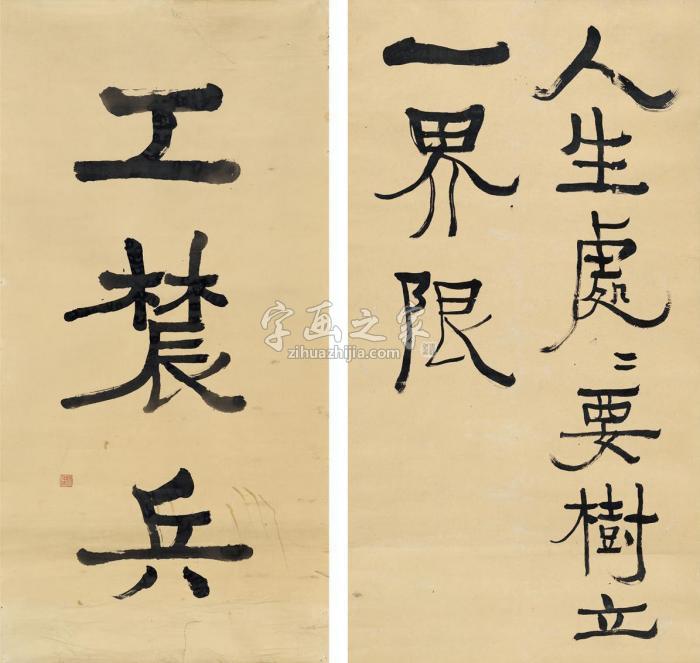 人生處〻要樹立
一界限
工辳兵
字画之家
zihuazhijia.com